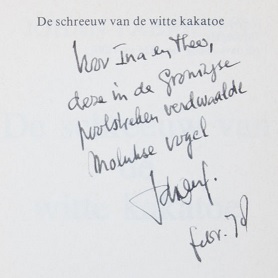 De schreeuw van de witte kakatoe
Voor Ina en Theo,
deze in de Groningse
poolstreken verdwaalde
Molukse vogel
febr. 78